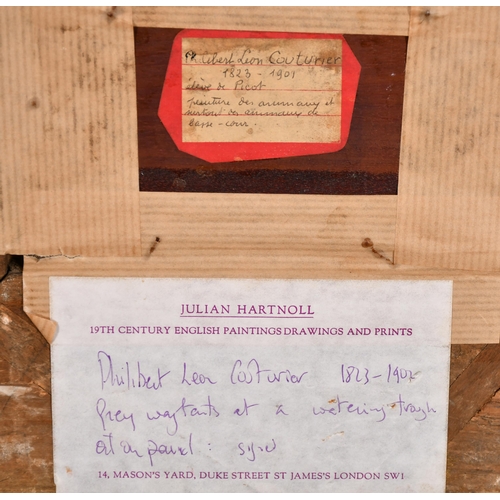 Philibert Léon Couturier
1823-1901
élève de Picot
peinture des animaux et
surtout des animaux de
basse-cour.
JULIAN HARTNOLL
19TH CENTURY ENGLISH PAINTINGS DRAWINGS AND PRINTS
Philibert Leon Couturier 1823-1901
Grey wagtails at a watering trough
oil on panel: signed
14, MASON'S YARD, DUKE STREET ST JAMES'S LONDON SW1